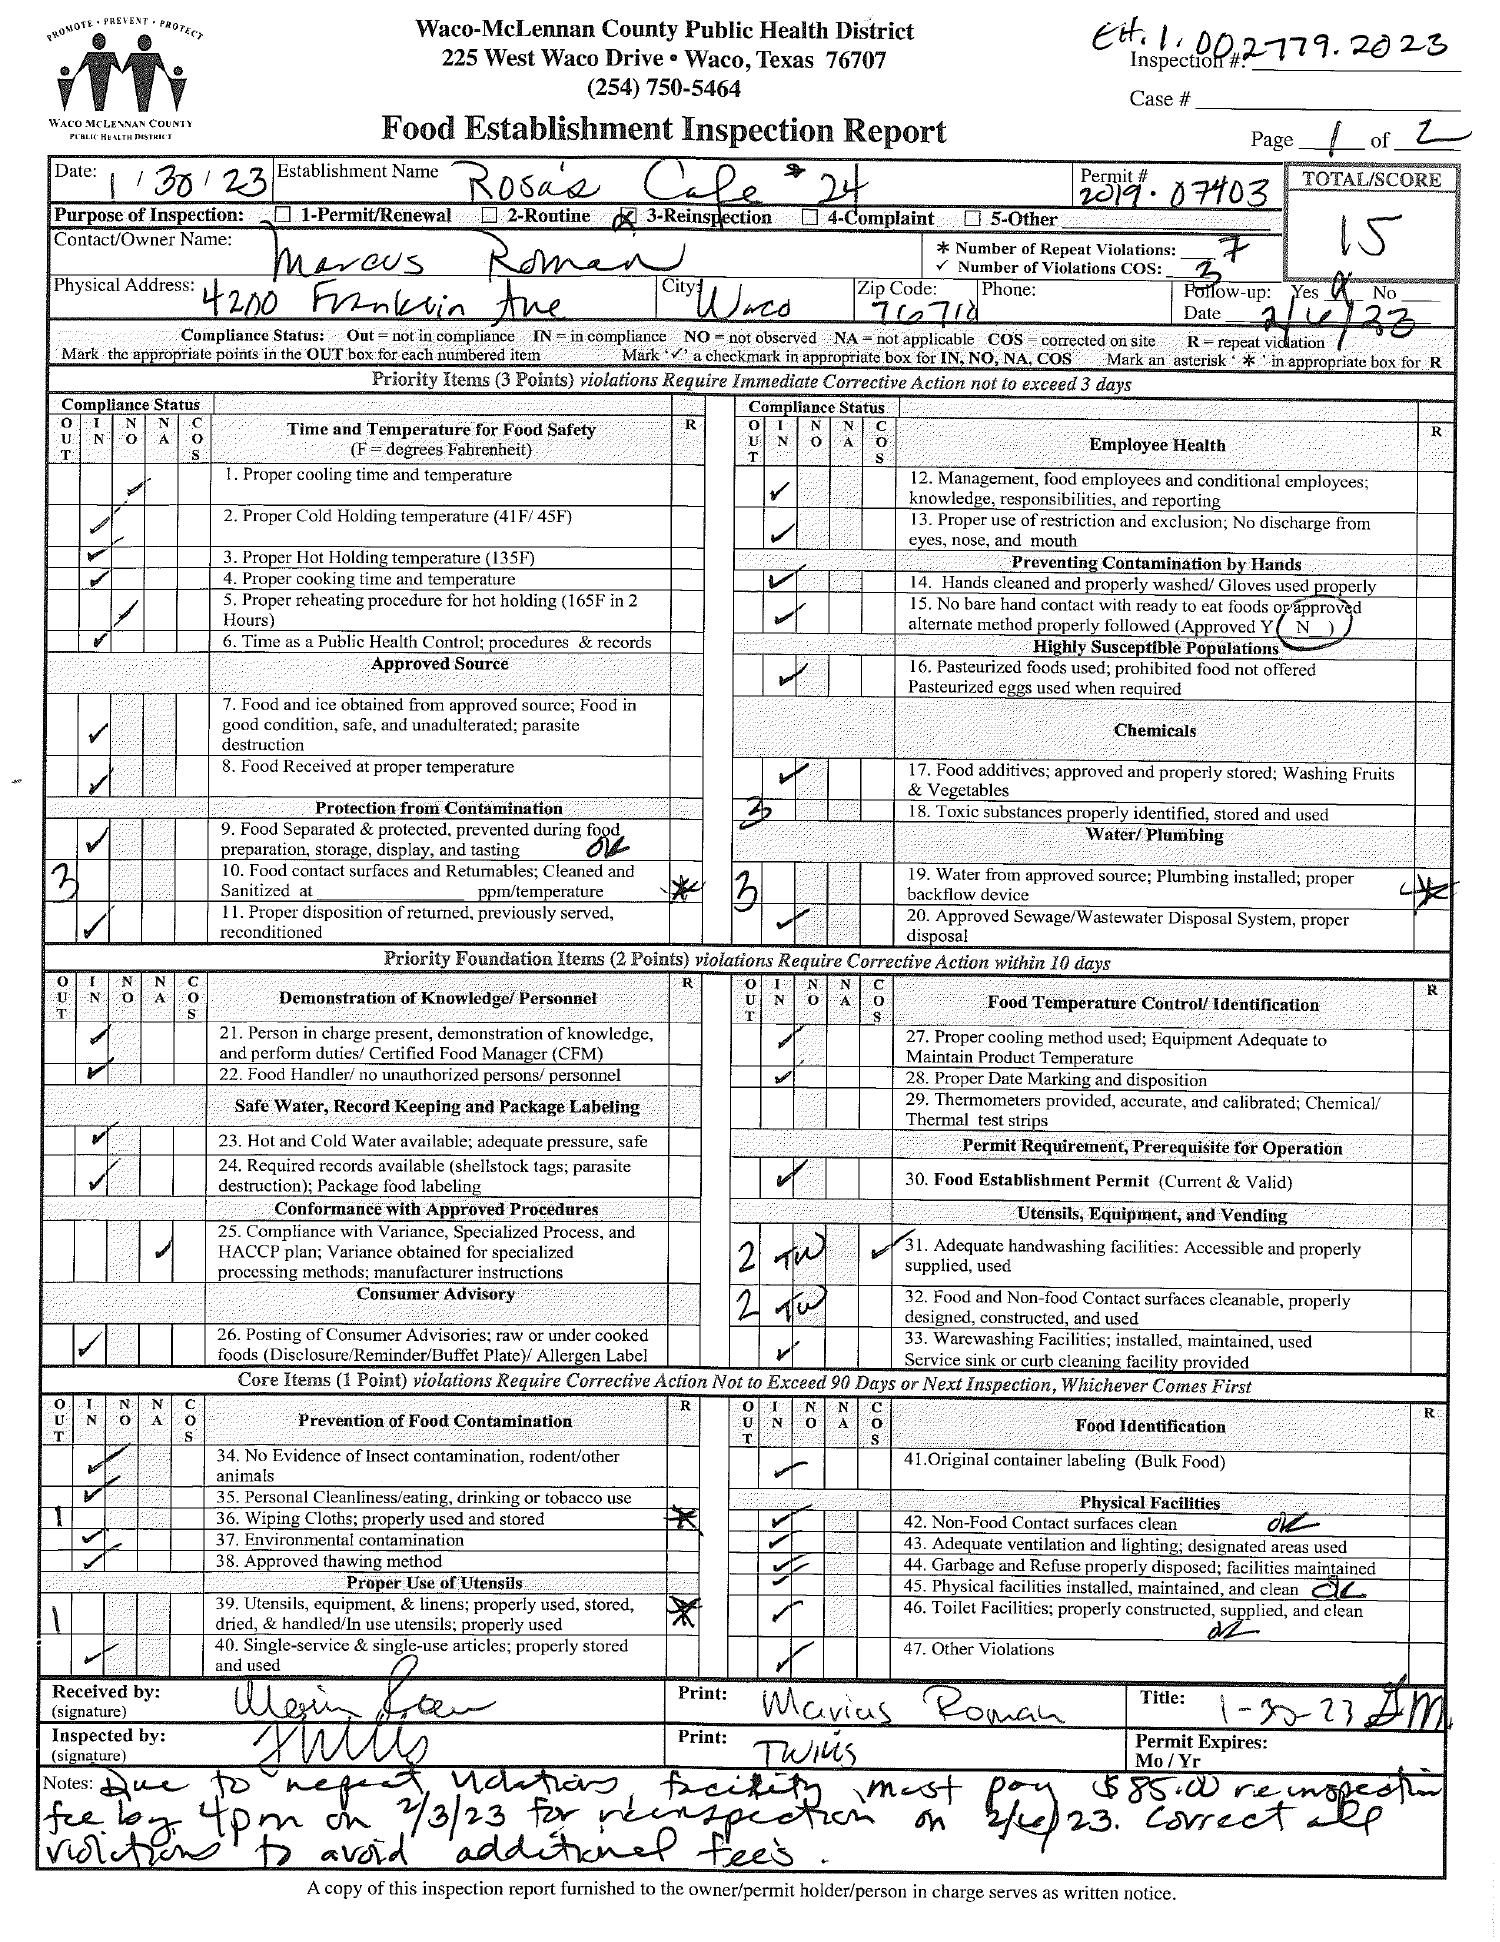 PROMOTE • PREVENT • PROTECT
WACO MCLENNAN COUNTY
PUBLIC HEALTH DISTRICT
Waco-McLennan County Public Health District
225 West Waco Drive • Waco, Texas 76707
(254) 750-5464
Food Establishment Inspection Report
Inspection #: EH.1.002779.2023
Case #
Page 1 of 2
Date: 1/30/23 Establishment Name Rosa's Cafe # 24 Permit # 2019.07403 TOTAL/SCORE
15
Purpose of Inspection: 1-Permit/Renewal 2-Routine 3-Reinspection 4-Complaint 5-Other
Contact/Owner Name: Marcus Roman * Number of Repeat Violations: 7
✓ Number of Violations COS: 3
Physical Address: 4200 Franklin Ave City: Waco Zip Code: 76710 Phone: Follow-up: Yes No
Date 2/6/23
Compliance Status: Out = not in compliance IN = in compliance NO = not observed NA = not applicable COS = corrected on site R = repeat violation
Mark the appropriate points in the OUT box for each numbered item Mark '✓' a checkmark in appropriate box for IN, NO, NA, COS Mark an asterisk ' * ' in appropriate box for R
Priority Items (3 Points) violations Require Immediate Corrective Action not to exceed 3 days
Compliance Status
OUT IN NO NA COS Time and Temperature for Food Safety R
(F = degrees Fahrenheit)
✓ 1. Proper cooling time and temperature
✓ 2. Proper Cold Holding temperature (41F/ 45F)
✓ 3. Proper Hot Holding temperature (135F)
✓ 4. Proper cooking time and temperature
✓ 5. Proper reheating procedure for hot holding (165F in 2
Hours)
✓ 6. Time as a Public Health Control; procedures & records
Approved Source
7. Food and ice obtained from approved source; Food in
✓ good condition, safe, and unadulterated; parasite
destruction
✓ 8. Food Received at proper temperature
Protection from Contamination
✓ 9. Food Separated & protected, prevented during food
preparation, storage, display, and tasting ok
3 10. Food contact surfaces and Returnables; Cleaned and
Sanitized at ppm/temperature *
✓ 11. Proper disposition of returned, previously served,
reconditioned
Compliance Status
OUT IN NO NA COS Employee Health R
✓ 12. Management, food employees and conditional employees;
knowledge, responsibilities, and reporting
✓ 13. Proper use of restriction and exclusion; No discharge from
eyes, nose, and mouth
Preventing Contamination by Hands
✓ 14. Hands cleaned and properly washed/ Gloves used properly
✓ 15. No bare hand contact with ready to eat foods or approved
alternate method properly followed (Approved Y N )
Highly Susceptible Populations
✓ 16. Pasteurized foods used; prohibited food not offered
Pasteurized eggs used when required
Chemicals
✓ 17. Food additives; approved and properly stored; Washing Fruits
& Vegetables
3 18. Toxic substances properly identified, stored and used
Water/ Plumbing
3 19. Water from approved source; Plumbing installed; proper
backflow device *
✓ 20. Approved Sewage/Wastewater Disposal System, proper
disposal
Priority Foundation Items (2 Points) violations Require Corrective Action within 10 days
OUT IN NO NA COS Demonstration of Knowledge/ Personnel R
✓ 21. Person in charge present, demonstration of knowledge,
and perform duties/ Certified Food Manager (CFM)
✓ 22. Food Handler/ no unauthorized persons/ personnel
Safe Water, Record Keeping and Package Labeling
✓ 23. Hot and Cold Water available; adequate pressure, safe
✓ 24. Required records available (shellstock tags; parasite
destruction); Package food labeling
Conformance with Approved Procedures
25. Compliance with Variance, Specialized Process, and
✓ HACCP plan; Variance obtained for specialized
processing methods; manufacturer instructions
Consumer Advisory
✓ 26. Posting of Consumer Advisories; raw or under cooked
foods (Disclosure/Reminder/Buffet Plate)/ Allergen Label
OUT IN NO NA COS Food Temperature Control/ Identification R
✓ 27. Proper cooling method used; Equipment Adequate to
Maintain Product Temperature
✓ 28. Proper Date Marking and disposition
29. Thermometers provided, accurate, and calibrated; Chemical/
Thermal test strips
Permit Requirement, Prerequisite for Operation
✓ 30. Food Establishment Permit (Current & Valid)
Utensils, Equipment, and Vending
2 TW ✓ 31. Adequate handwashing facilities: Accessible and properly
supplied, used
2 TW 32. Food and Non-food Contact surfaces cleanable, properly
designed, constructed, and used
✓ 33. Warewashing Facilities; installed, maintained, used
Service sink or curb cleaning facility provided
Core Items (1 Point) violations Require Corrective Action Not to Exceed 90 Days or Next Inspection, Whichever Comes First
OUT IN NO NA COS Prevention of Food Contamination R
✓ 34. No Evidence of Insect contamination, rodent/other
animals
✓ 35. Personal Cleanliness/eating, drinking or tobacco use
1 36. Wiping Cloths; properly used and stored *
✓ 37. Environmental contamination
✓ 38. Approved thawing method
Proper Use of Utensils
1 39. Utensils, equipment, & linens; properly used, stored,
dried, & handled/In use utensils; properly used *
✓ 40. Single-service & single-use articles; properly stored
and used
OUT IN NO NA COS Food Identification R
✓ 41.Original container labeling (Bulk Food)
Physical Facilities
✓ 42. Non-Food Contact surfaces clean ok
✓ 43. Adequate ventilation and lighting; designated areas used
✓ 44. Garbage and Refuse properly disposed; facilities maintained
✓ 45. Physical facilities installed, maintained, and clean ok
✓ 46. Toilet Facilities; properly constructed, supplied, and clean
ok
✓ 47. Other Violations
Received by: Print: Marius Roman Title: 1-30-23 GM
(signature)
Inspected by: Print: TWillis Permit Expires:
(signature) Mo / Yr
Notes: Due to repeat violations, facility must pay $85.00 reinspection
fee by 4pm on 2/3/23 for reinspection on 2/6/23. Correct all
violations to avoid additional fees.
A copy of this inspection report furnished to the owner/permit holder/person in charge serves as written notice.